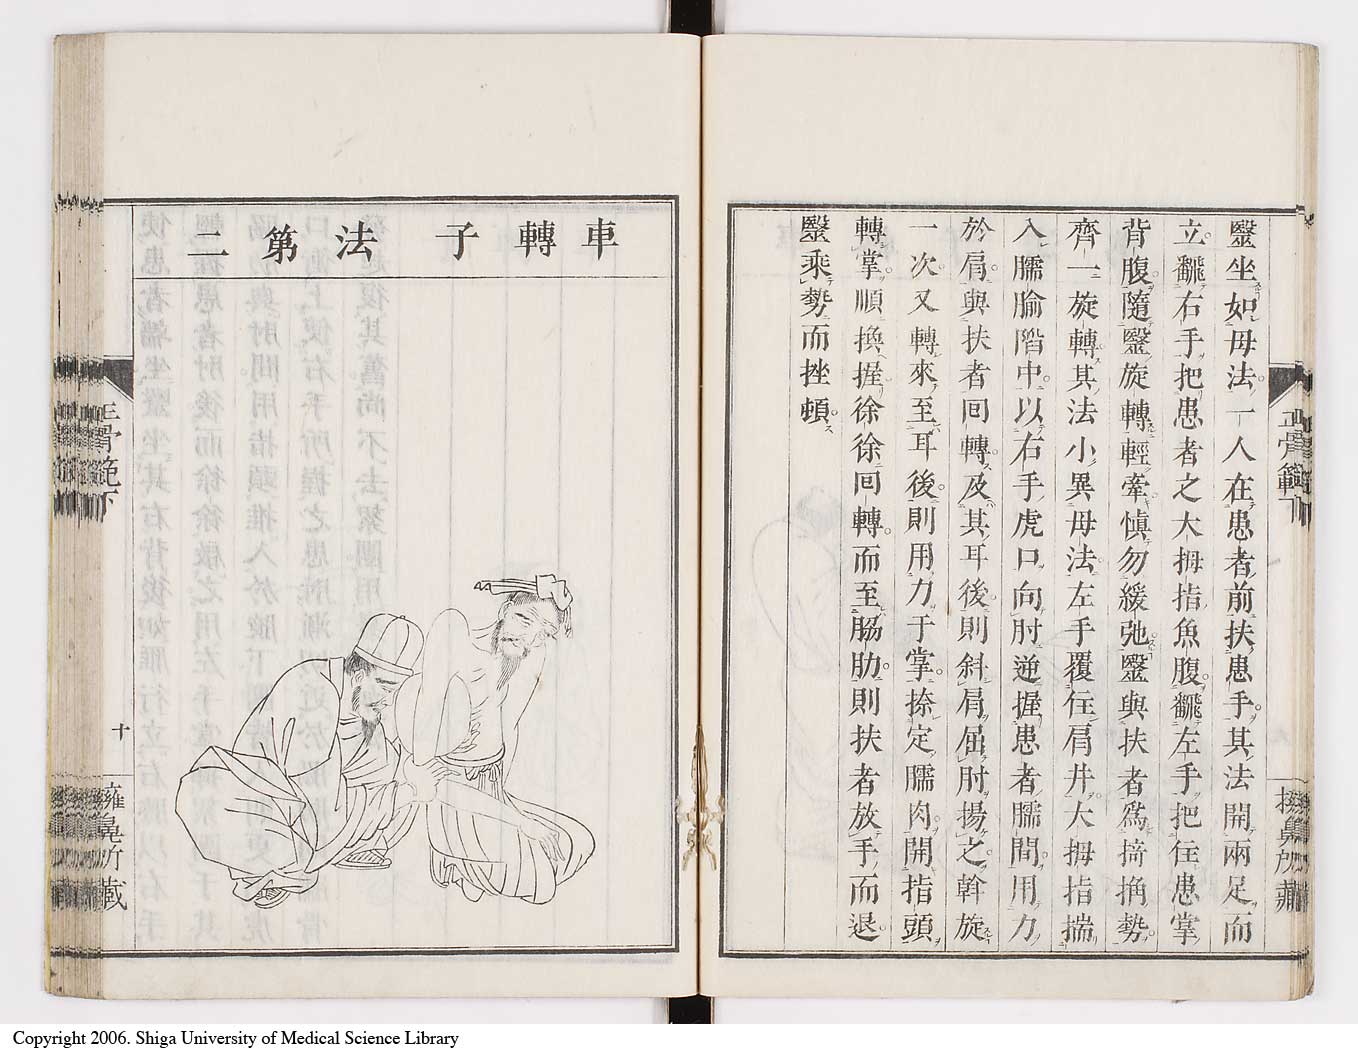 毉坐如母法一人在患者前扶患手其法開兩足而
立飜右手把患者之大拇指魚腹飜左手把住患掌
背腹隨毉旋轉輕牽愼勿緩弛毉與扶者爲掎角勢
齊一旋轉其法小異母法左手覆住肩井大拇指揣
入臑腧陷中以右手虎口向肘逆握患者臑間用力
於肩與扶者回轉及其耳後則斜肩屈肘揚之斡旋
一次又轉來至耳後則用力于掌捺定臑肉開指頭
轉掌順換握徐徐回轉而至脇肋則扶者放手而退
毉乘勢而挫頓
正骨範下
車轉子法第二
正骨範下
十
擁鼻所藏
Copyright 2006. Shiga University of Medical Science Library